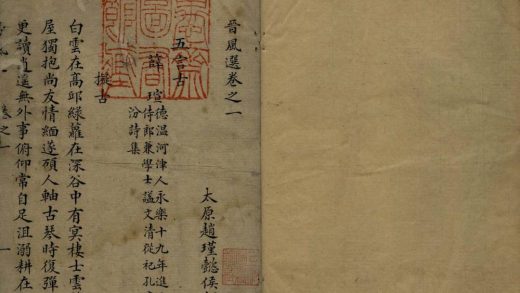 晉風選卷之一
太原趙瑾懿侯
五言古
薛瑄
德温河津人永樂十九年進
侍郎兼學士謚文清從祀孔
汾詩集
擬古
白雲在高邱緑蘿在深谷中有冥棲士雲
屋獨抱尚友情緬邃碩人軸古琴時復彈
更讀逍遥無外事俯仰常自足沮溺耕在
卷之一
一